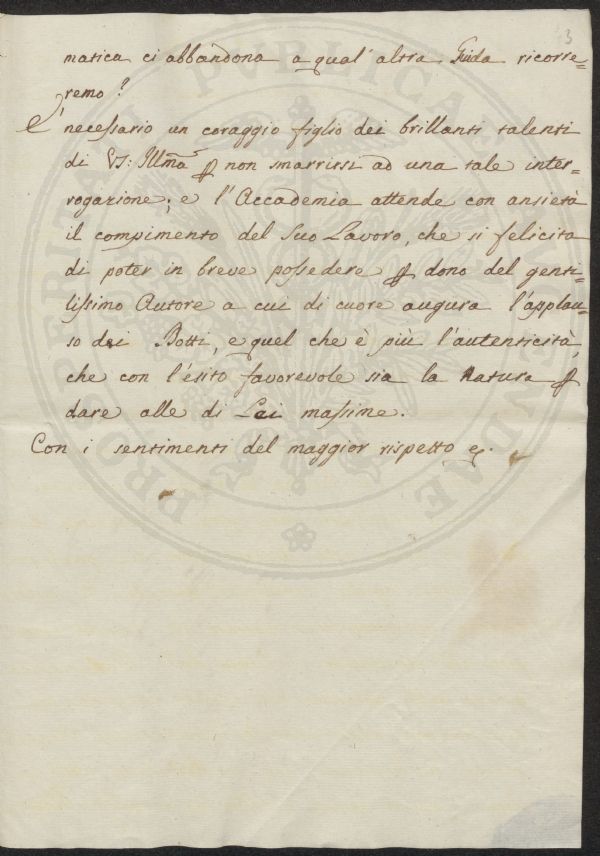 3
matica ci abbandona a qual'altra Guida ricorre=
remo?
E' necessario un coraggio figlio dei brillanti talenti
di VS: Illma ꝑ non smarrirsi ad una tale inter=
rogazione; e l'Accademia attende con ansietà
il compimento del Suo Lavoro, che si felicita
di poter in breve possedere ꝑ dono del genti=
lissimo Autore a cui di cuore augura l'applau=
so dei Dotti, e quel che è più l'autenticità,
che con l'esito favorevole sia la Natura ꝑ
dare alle di Lei massime.
Con i sentimenti del maggior rispetto
PROSPERITATI PVBLICAE AVGENDAE